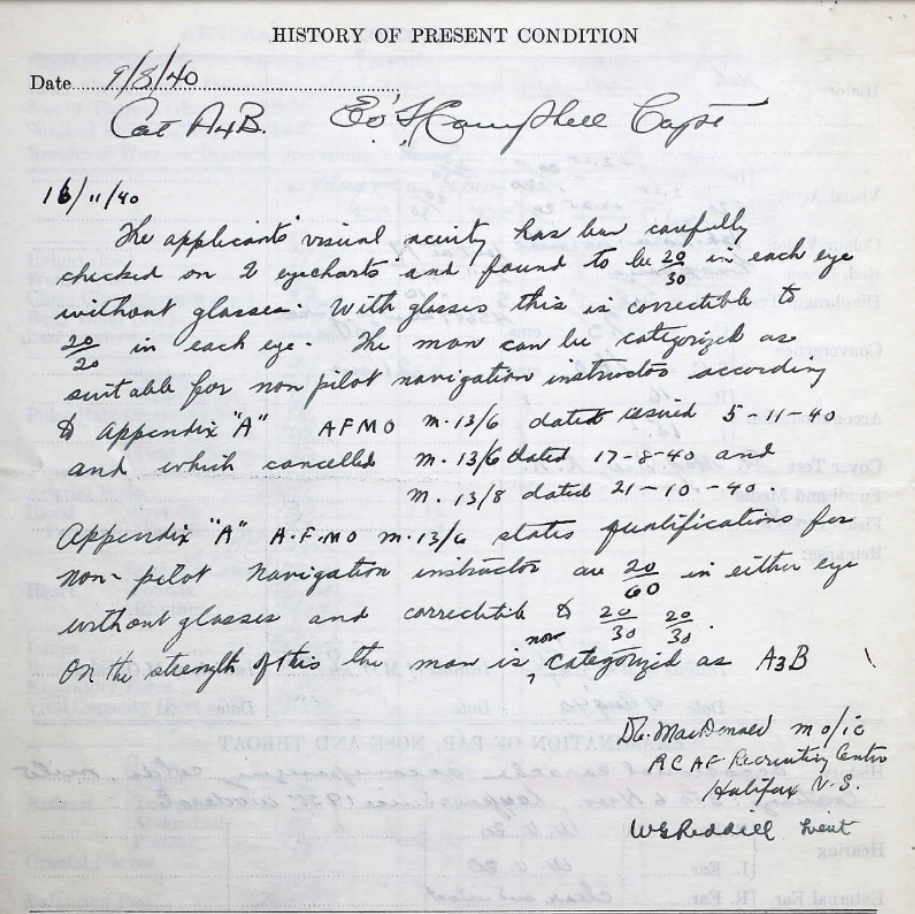 HISTORY OF PRESENT CONDITION
Date 9/8/40
Cat A4B. Campbell Capt
16/11/40
The applicants visual acuity has been carefully
checked on 2 eyecharts and found to be 20/30 in each eye
without glasses. With glasses this is correctible to
20/20 in each eye. The man can be categorized as
suitable for non pilot navigation instructor according
to Appendix "A" AFMO m.13/6 dated issued 5-11-40
and which cancelled m.13/6 dated 17-8-40 and
m.13/8 dated 21-10-40.
Appendix "A" A.F.M.O m.13/6 states qualifications for
non-pilot navigation instructor are 20/60 in either eye
without glasses and correctible to 20/30 20/30.
On the strength of this the man is now categorized as A3B
MacDonald m o/ic
RCAF Recruiting Centre
Halifax N.S.